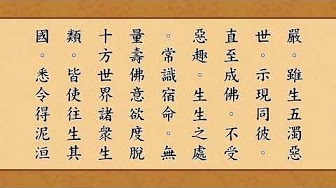 嚴。雖生五濁惡
世。示現同彼。
直至成佛。不受
惡趣。生生之處
。常識宿命。無
量壽佛意欲度脫
十方世界諸眾生
類。皆使往生其
國。悉令得泥洹